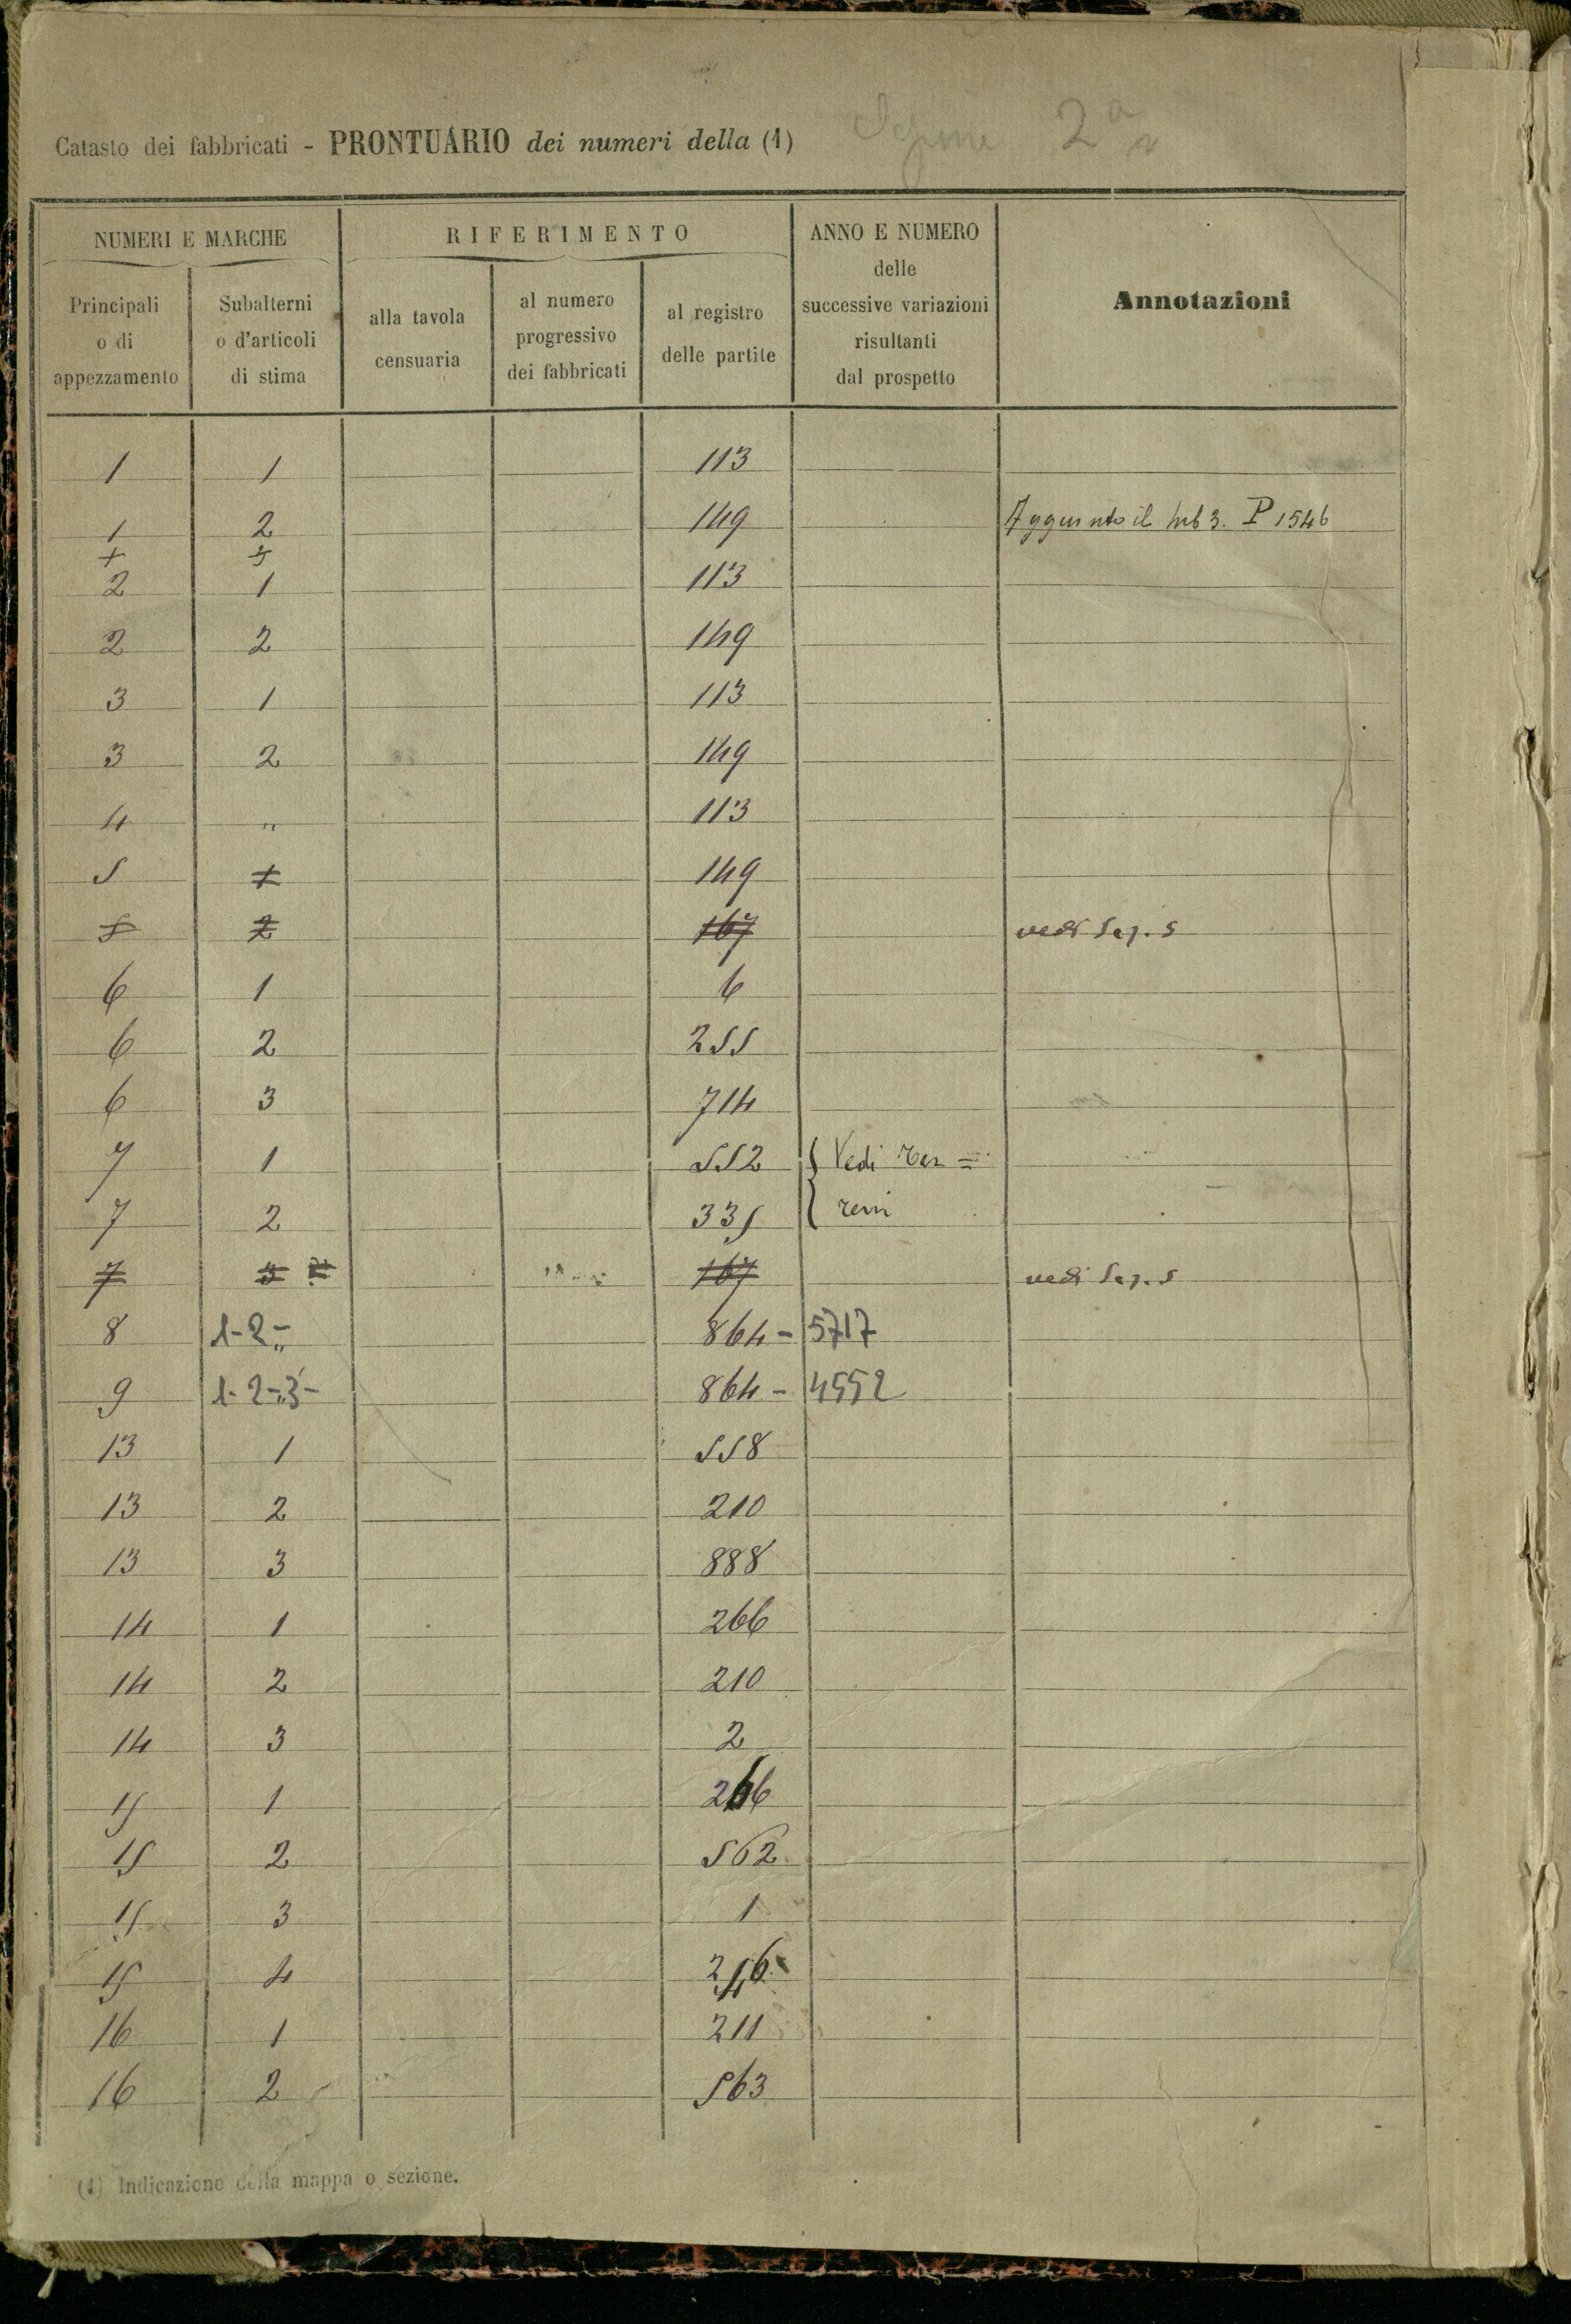 Catasto dei fabbricati - PRONTUARIO dei numeri della (1) 2ª
NUMERI E MARCHE
RIFERIMENTO
ANNO E NUMERO
delle
successive variazioni
risultanti
dal prospetto
Annotazioni
Principali
o di
appezzamento
Subalterni
o d'articoli
di stima
alla tavola
censuaria
al numero
progressivo
dei fabbricati
al registro
delle partite
1 1 113
1 2 149 Aggiunto il sub 3. P 1546
2 1 113
2 2 149
3 1 113
3 2 149
4 " 113
5 1 149
5 2 167 vedi Sez. 5
6 1 6
6 2 255
6 3 714
7 1 552 Vedi ter=
7 2 335 reni
7 3 167 vedi Sez. 5
8 1-2-" 864 - 5717
9 1-2-"3- 864 - 4552
13 1 558
13 2 210
13 3 888
14 1 266
14 2 210
14 3 2
15 1 266
15 2 562
15 3 1
15 4
16 1 211
16 2 563
(1) Indicazione della mappa o sezione.